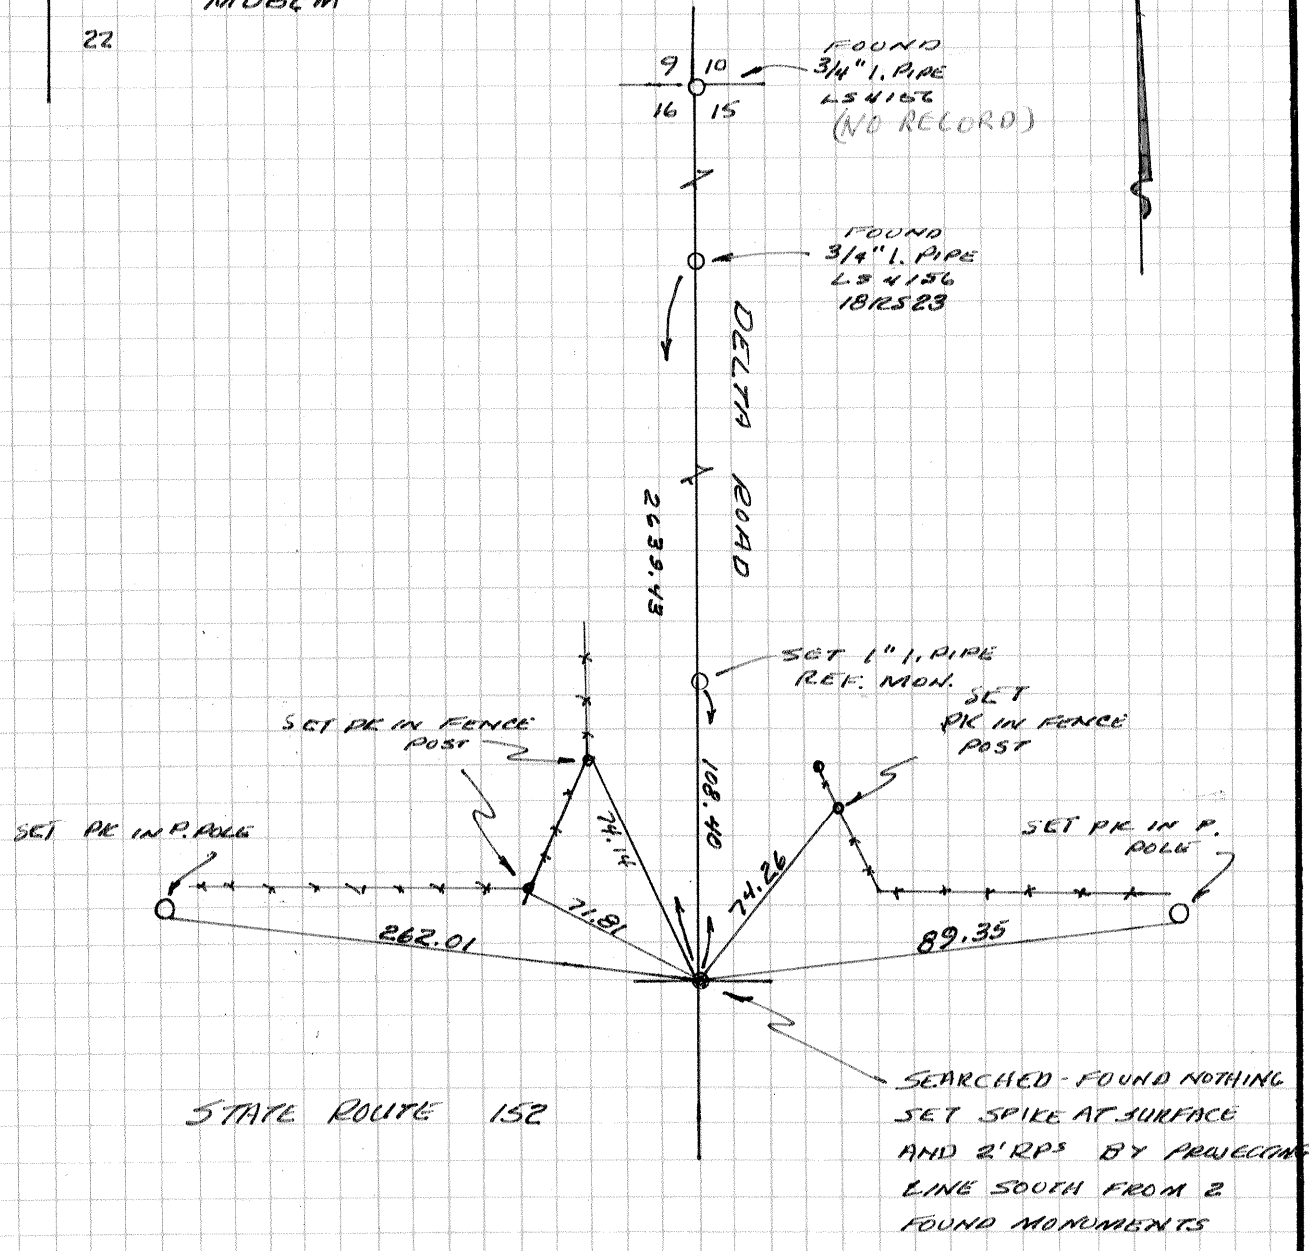 MDB&M
22
9 10
16 15
FOUND
3/4" I. PIPE
LS 4156
(NO RECORD)
FOUND
3/4" I. PIPE
LS 4156
18RS23
DELTA ROAD
2639.43
SET 1" I. PIPE
REF. MON.
SET
PK IN FENCE
POST
SET PK IN FENCE
POST
108.40
74.14
SET PK IN P. POLE
SET PK IN P.
POLE
74.26
71.81
262.01
89.35
SEARCHED - FOUND NOTHING
SET SPIKE AT SURFACE
AND 2' RPS BY PROJECTING
LINE SOUTH FROM 2
FOUND MONUMENTS
STATE ROUTE 152